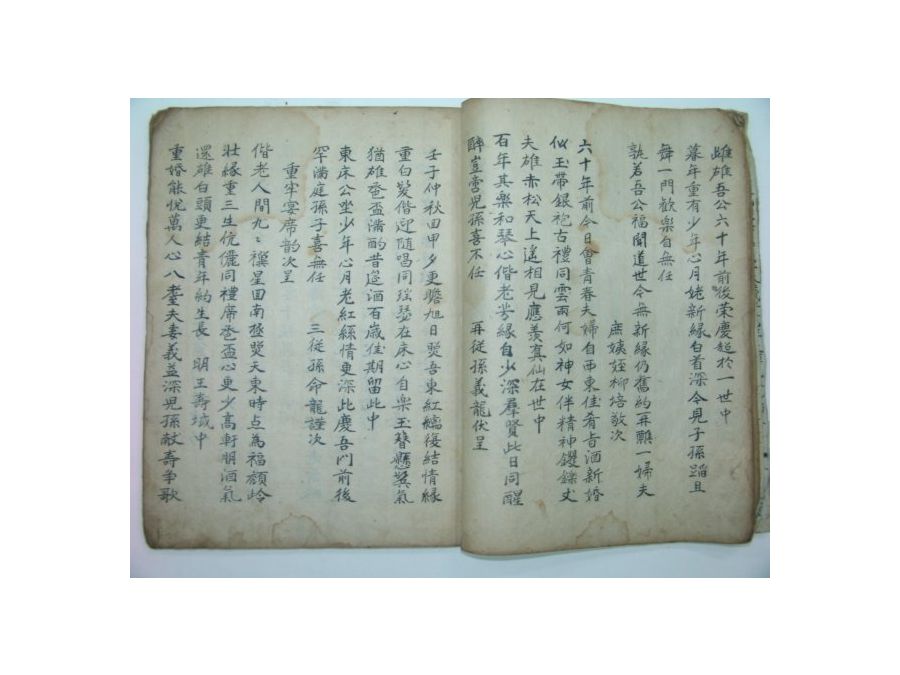 雌雄吾公六十年前後荣慶超於一世中
暮年重有少年心月姥新緣白首深今見子孫蹈且
舞一門歡樂自無任
孰若吾公福聞道世令無新緣仍舊約再醮一婦夫
庶姨姪柳培敬次
六十年前今日會青春夫婦自西東佳肴旨酒新婚
似玉帶銀袍古禮同雲雨何如神女伴精神钁鑠丈
夫雄赤松天上遙相見應羨真仙在世中
百年其樂和琴心偕老芳緣自少深羣賢此日同醒
醉豈啻兒孫喜不任 再從孫義龍伏呈
壬子仲秋回甲夕更瞻旭日奬吾東紅繻復結情緣
重白髮偕迎隨唱同瑤琴在床心自樂玉簪懸冀氣
猶雄卺盃滿酌昔邊酒百歲佳期留此中
東床公坐少年心月老紅絲情更深此慶吾門前後
罕滿庭孫子喜無任 三從孫命龍謹次
重牢宴席韵次呈
偕老人間九〻襈星回南極煚天東時点為福顏岭
壯緣重三生伉儷同禮席卺盃心更少高軒朋酒氣
還雄白頭更結青年約生長 明王壽域中
重婚能悦萬人心八耋夫妻義益深兒孫献壽争歌